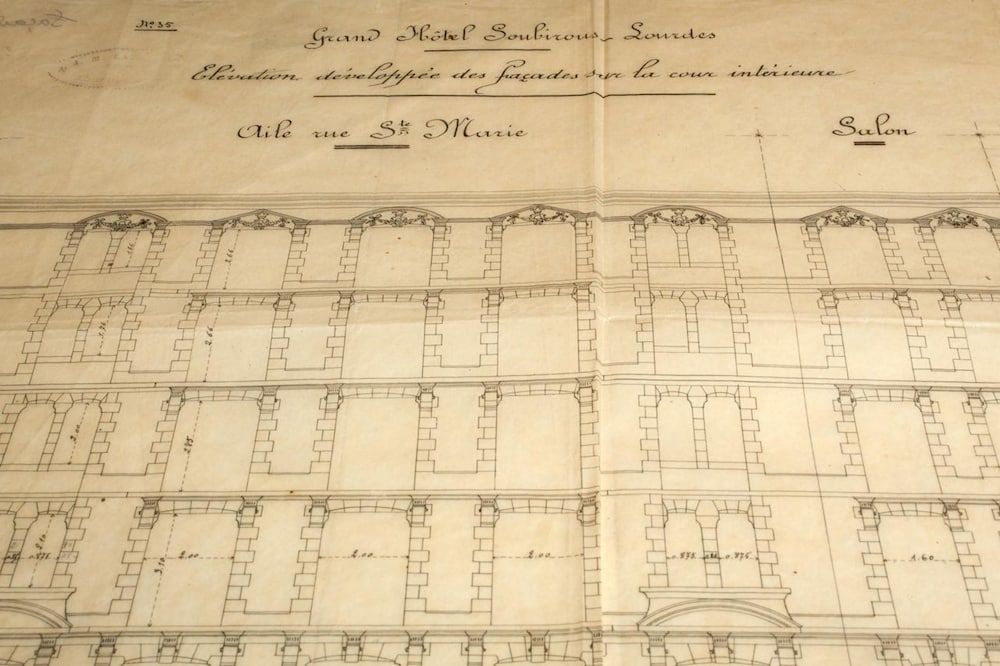 No 35
Grand Hôtel Soubirous - Lourdes
Elévation développée des façades sur la cour intérieure
Aile rue Ste Marie
Salon
2.66
2.66
2.00
2.75
2.10
3.10
2.00
2.00
2.00
0.875
0.875
1.60